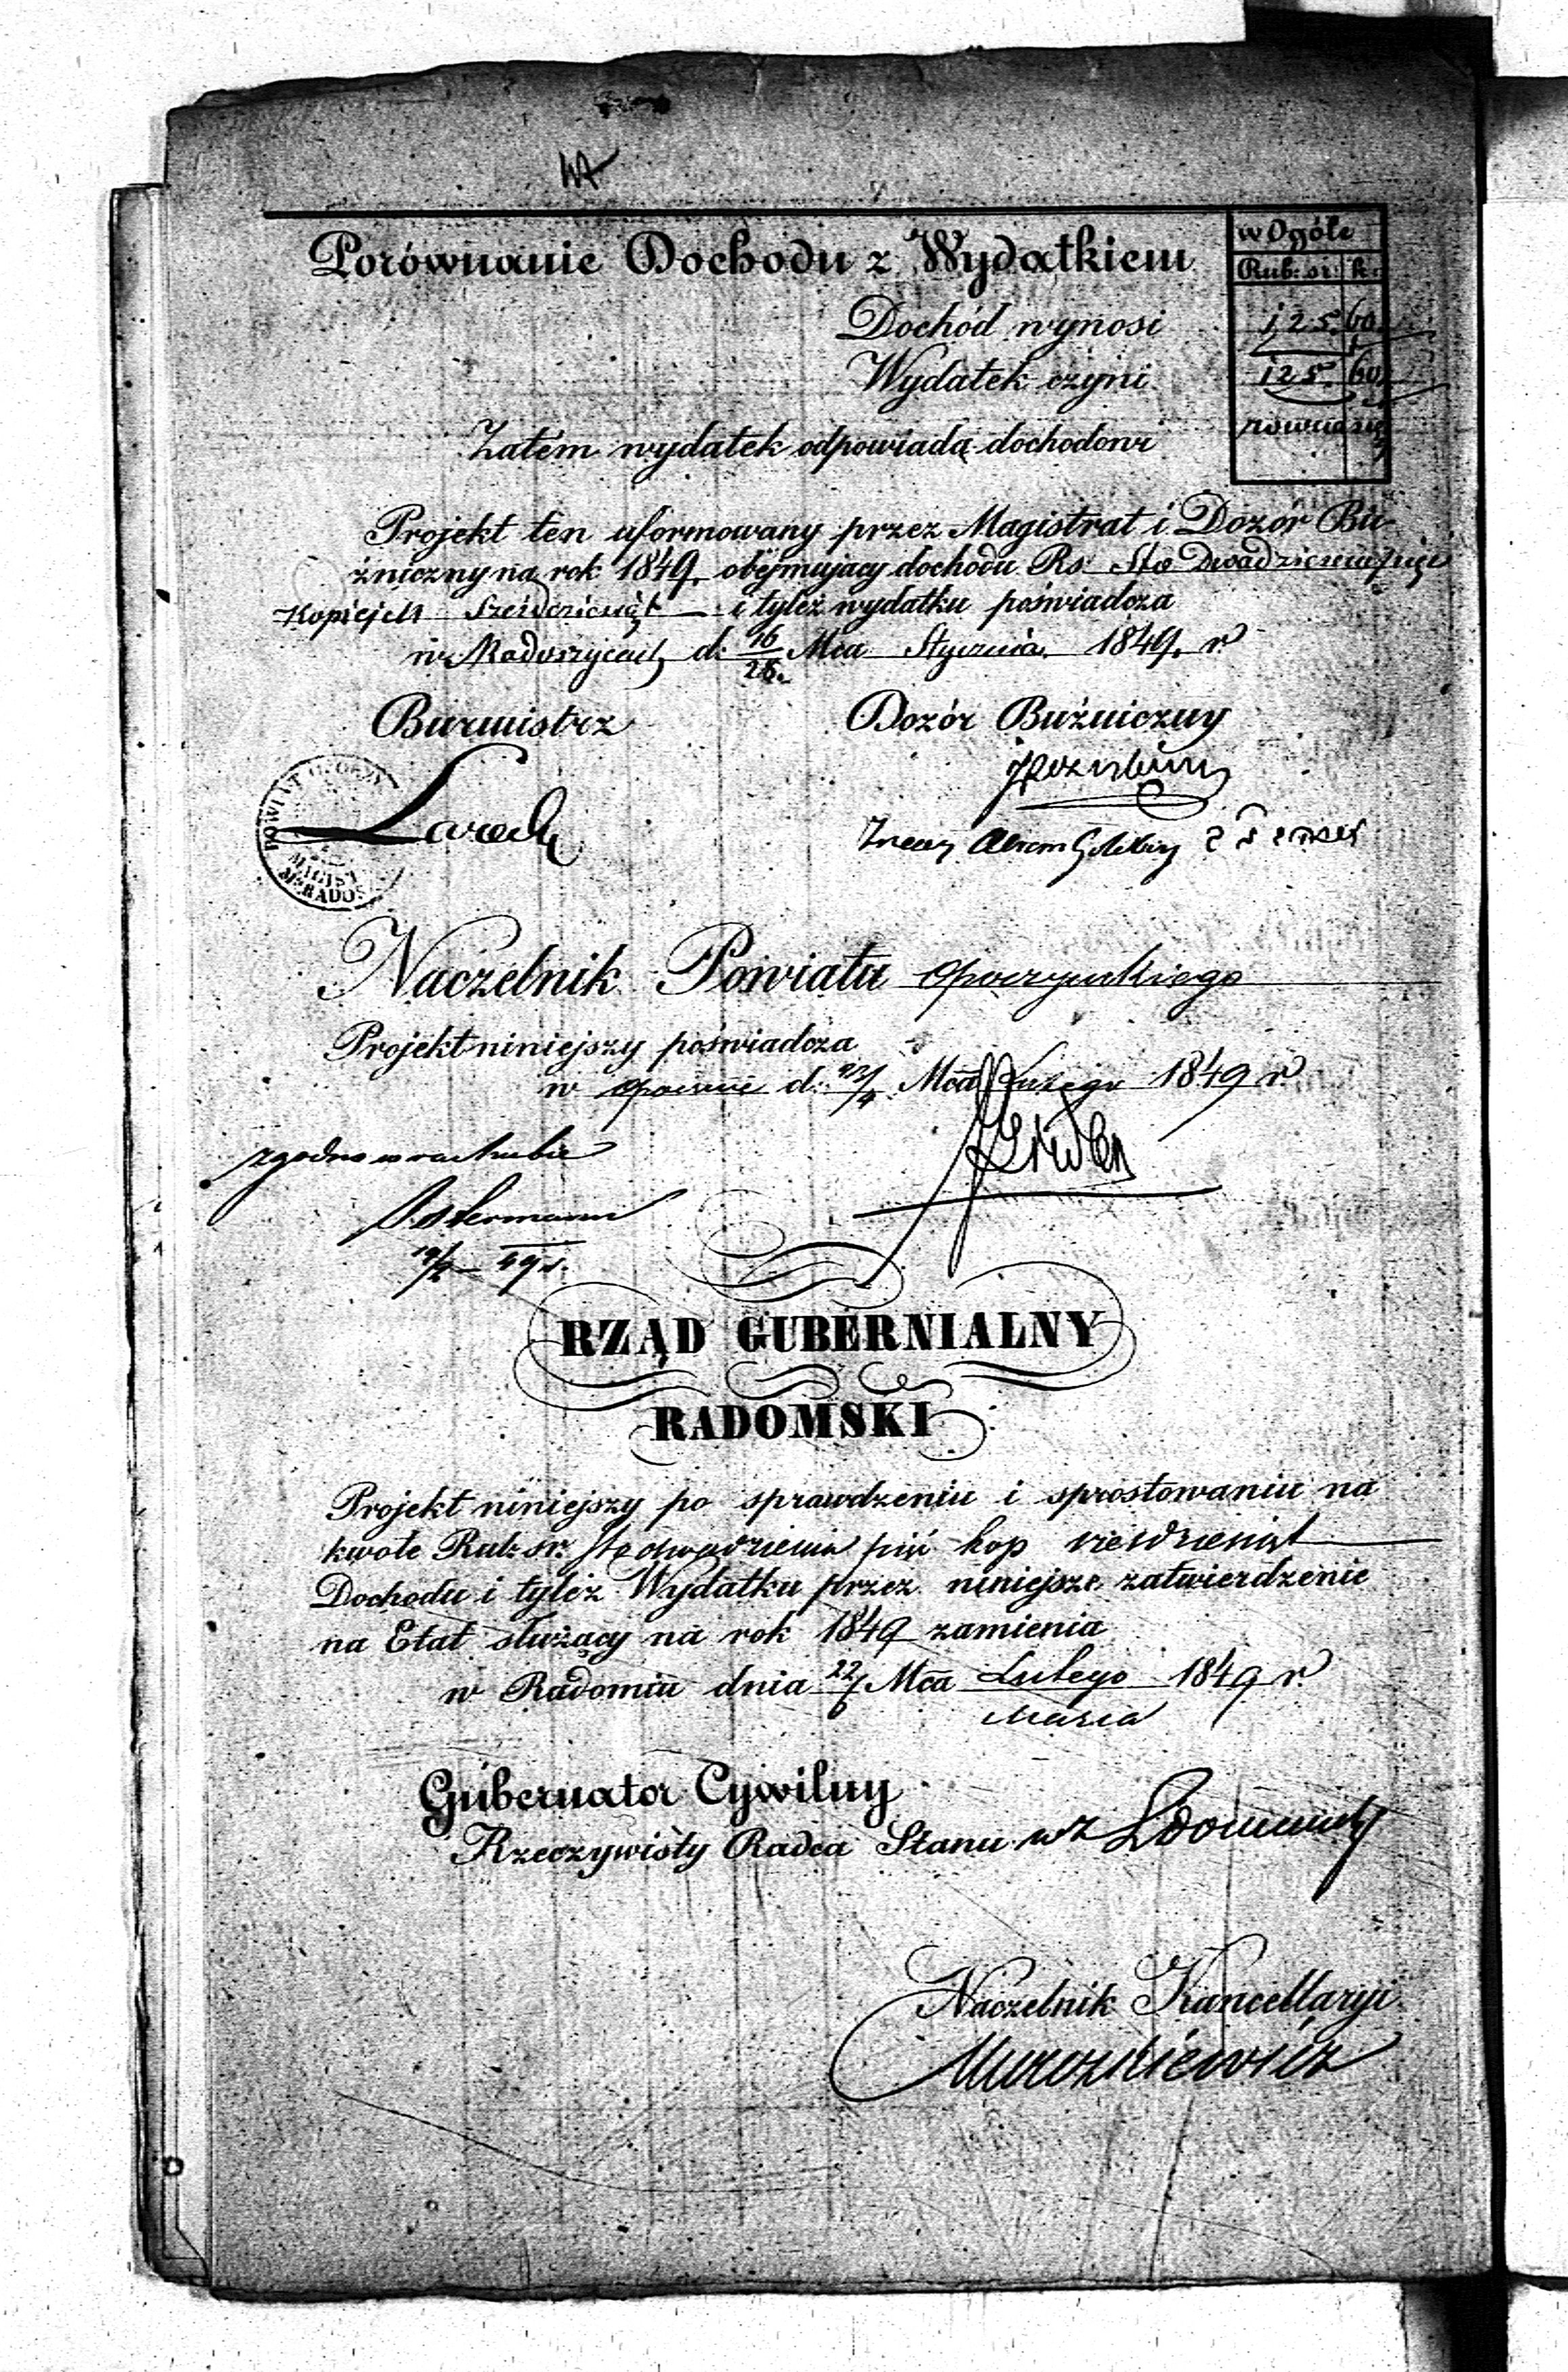 Porównanie Dochodu z Wydatkiem
w Ogóle
Rub: sr: k:
Dochód wynosi 125. 60.
Wydatek czyni 125. 60.
Zatém wydatek odpowiada dochodowi równa się
Projekt ten uformowany przez Magistrat i Dozór Bu-
żniczny na rok 1849. obejmujący dochodu Rs: Sto Dwadzieścia pięć
Kopiejek Sześćdziesiąt i tyleż wydatku poświadcza
w Radoszycach d: 16/28. Mca Stycznia 1849. r
Burmistrz
Dozór Bużniczny
POWIAT
MAGIST
M. RADOS.
Naczelnik Powiatu Opoczyńskiego
Projekt niniejszy poświadcza
w Opocznie d: Mca Lutego 1849 r.
zgodno w rachubie
Ostermann
19/2 49 r.
RZĄD GUBERNIALNY
RADOMSKI
Projekt niniejszy po sprawdzeniu i sprostowaniu na
kwotę Rub: sr: Sto dwadzieścia pięć kop sześćdziesiąt
Dochodu i tyleż Wydatku przez niniejsze zatwierdzenie
na Etat służący na rok 1849 zamienia
w Radomiu dnia 22/6 Mca Lutego 1849 r.
Marca
Gubernator Cywilny
Rzeczywisty Radca Stanu wz
Naczelnik Kancellaryi